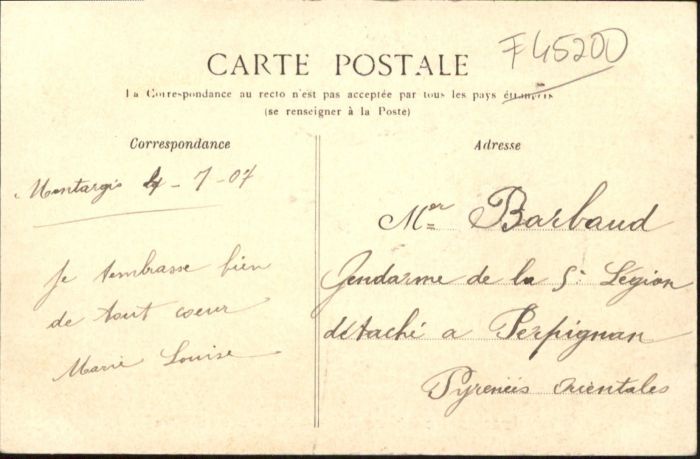 F45200
CARTE POSTALE
La Correspondance au recto n'est pas acceptée par tous les pays étrangers
(se renseigner à la Poste)
Correspondance
Montargis 4-7-07
Je t'embrasse bien
de tout coeur
Marie Louise
Adresse
Mer Barbaud
Gendarme de la 5e Légion
détaché a Perpignan
Pyreneés orientales